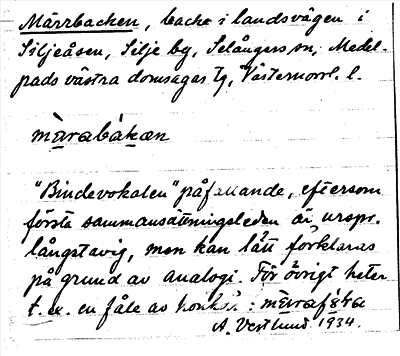 Märrbacken, backe i landsvägen i
Siljeåsen, Silje by, Selångers sn, Medel-
pads västra domsagas tg, Västernorrl. l.
märabàkæn
"Bindevokalen" påfallande, eftersom
första sammansättningsleden är urspr.
långstavig, men kan lätt förklaras
på grund av analogi. För övrigt heter
t.ex. en fåle av honkön:
A. Vestlund 1934.